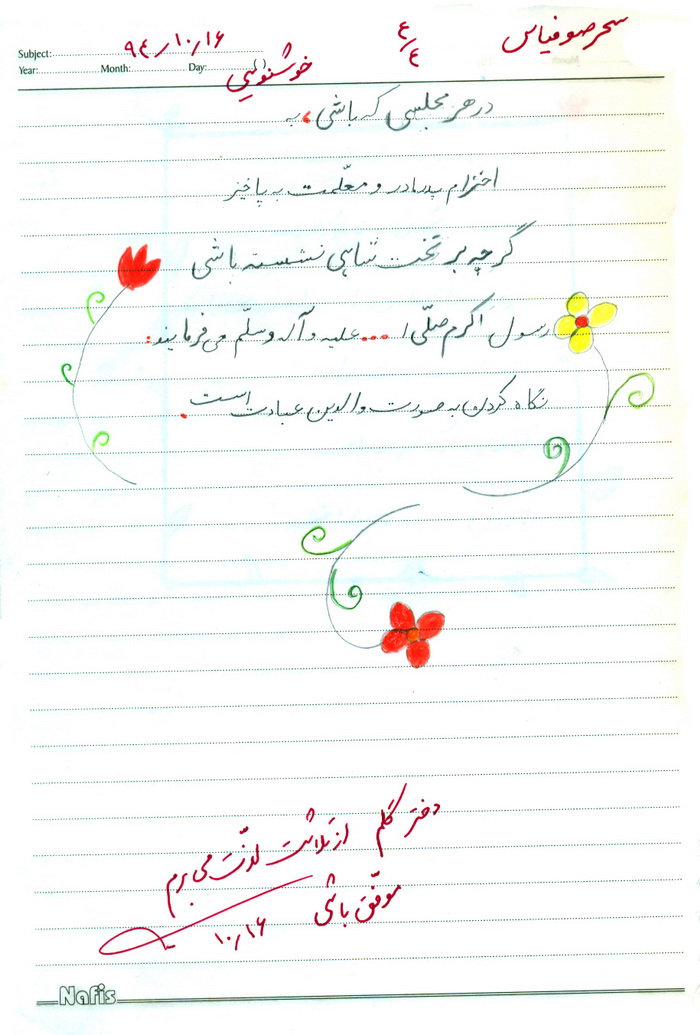 سحر صوفیاس
۴/۴
Subject: ۹۴/۱۰/۱۶
Year: Month: Day:
خوشنویسی
در هر مجلسی که باشی، به
احترام پدر مادر و معلّمت به پا خیز
گرچه بر تخت شاهی نشسته باشی
رسول اکرم صلّی ا... علیه و آله و سلّم می فرمایند:
نگاه کردن به صورت والدین عبادت است.
دختر گلم از تلاشت لذّت می برم
موفّق باشی
۱۰/۱۶
Nafis